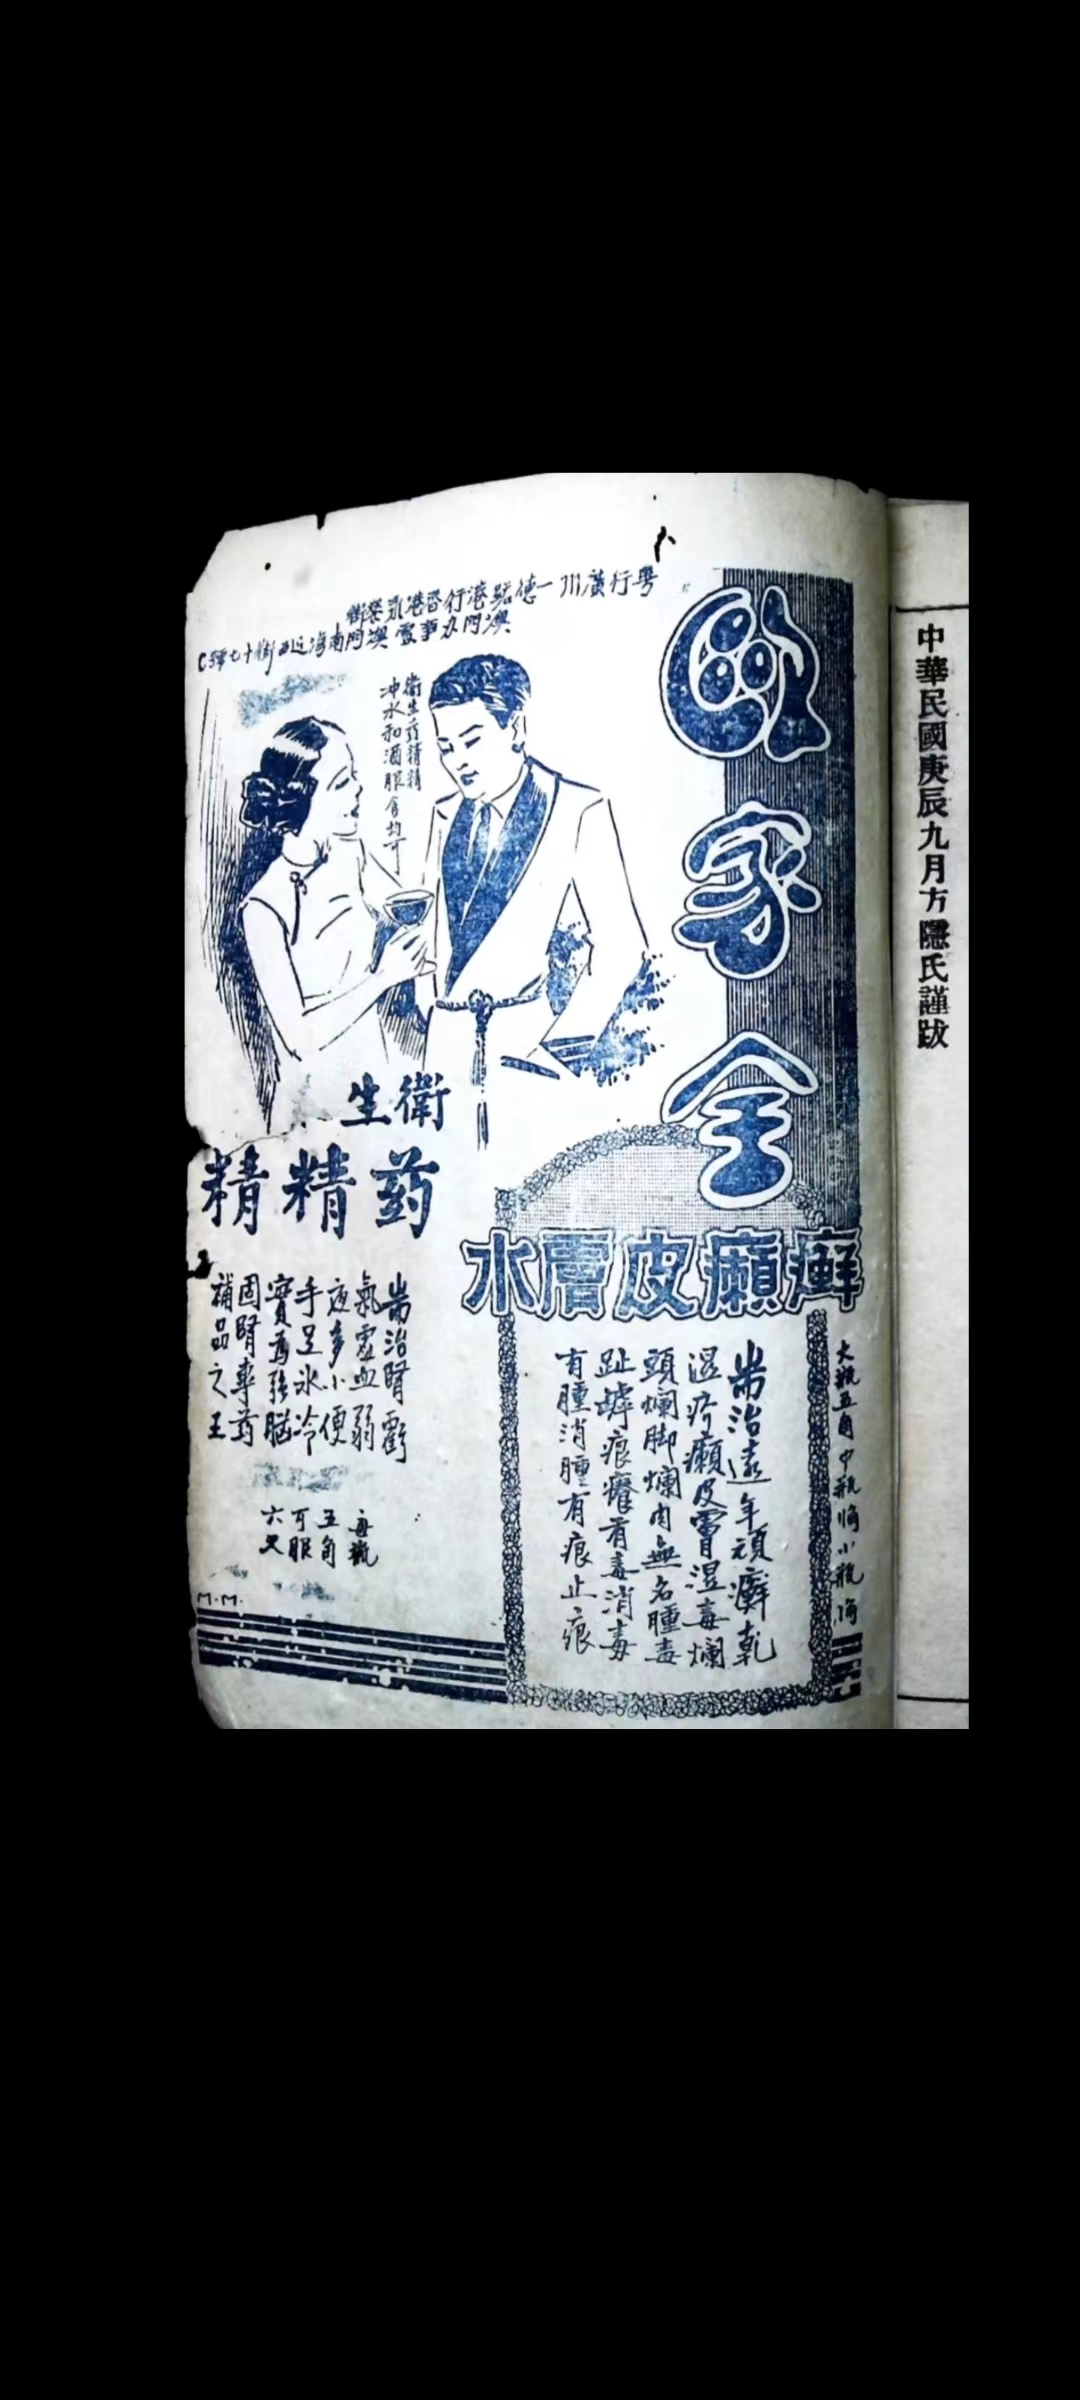 中華民國庚辰九月方隱氏謹跋
歐家全
癬癩皮膚水
大瓶五角中瓶
小瓶
耑治遠年頑癬乾
湿疹癩皮
湿毒爛
頭爛脚爛肉無名腫毒
趾罅痕癢有毒消毒
有腫消腫有痕止痕
粤行廣州一德路港行香港永樂街
澳門南海近西街十七號C
衛生药精精
冲水和酒服食均可
衛生
药精精
耑治腎虧
氣虚血弱
夜多小便
手足冰冷
實為强腦
固腎專药
補品之王
每瓶
五角
可服
六次
M.M.